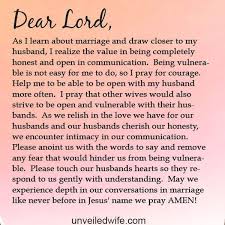 Dear Lord,
As I learn about marriage and draw closer to my
husband, I realize the value in being completely
honest and open in communication.  Being vulnera-
ble is not easy for me to do, so I pray for courage.
Help me to be able to be open with my husband
more often.  I pray that other wives would also
strive to be open and vulnerable with their hus-
bands.  As we relish in the love we have for our
husbands and our husbands cherish our honesty,
we encounter intimacy in our communication.
Please anoint us with the words to say and remove
any fear that would hinder us from being vulnera-
ble.  Please touch our husbands hearts so they re-
spond to us gently with understanding.  May we
experience depth in our conversations in marriage
like never before in Jesus' name we pray AMEN!
unveiledwife.com